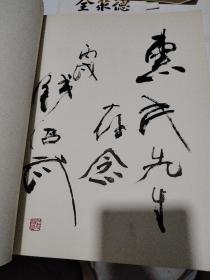 全聚德
惠民先生
存念
丙戌
钱绍武